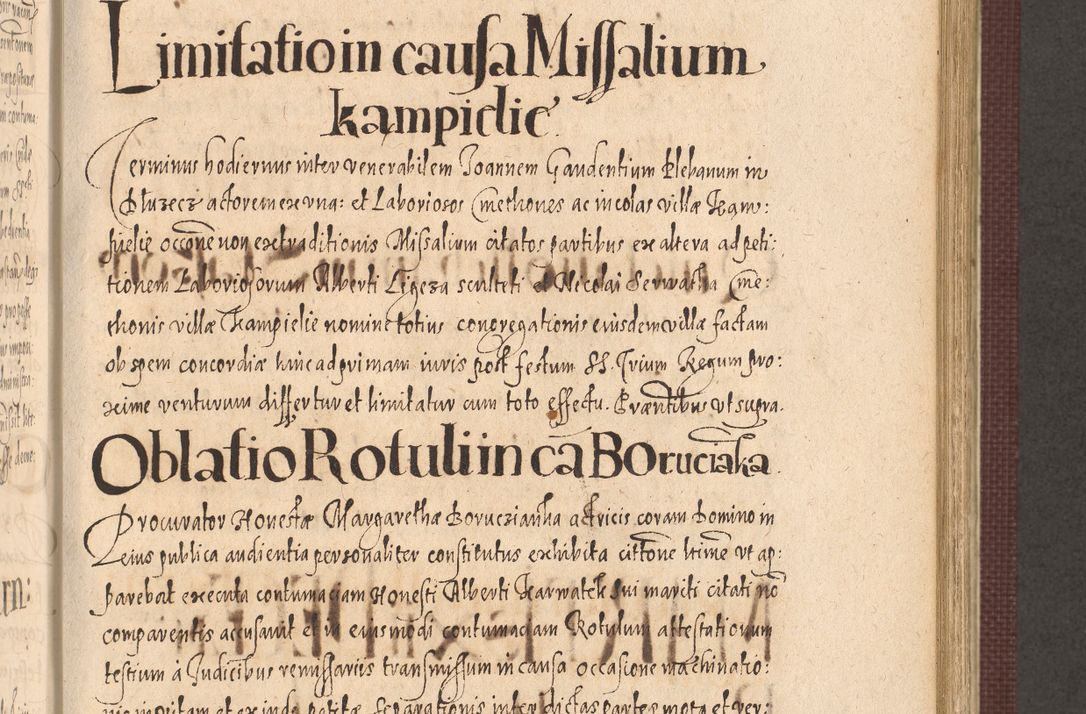 Limitatio in causa Missalium
kampielie
Terminus hodiernus inter venerabilem Joannem Gaudentium Plebanum in
Pluzecz actorem ex una: et Laboriosos Cmethones ac incolas villæ Kam:
pielie occōne non extraditionis Missalium citatos partibus ex altera ad peti:
tionem Laboriosorum Alberti Ligeza sculteti et Nicolai Serwatka Cme:
thonis villæ Kampielie nomine totius congregationis eiusdem villæ factam
ob spem concordiæ hinc ad primam iuris post festum SS. Trium Regum pro:
xime venturum differtur et limitatur cum toto effectu. Præntibus ut supra.
Oblatio Rotuli in cā Boruciāka
Procurator Honestæ Margarethæ Borucziankа actricis coram Domino in
eius publica audientia personaliter constitutus exhibita cittōne litmē ut ap:
parebat executa contumaciam Honesti Alberti Karwatek sui mariti citati nō
comparentis accusavit et in eius modi contumaciam Rotulum attestationum
testium à Judicibus remissariis transmissum in causa occasione machinatio:
nis in vitam et exinde petitæ separationis inter dictas partes mota et ver: